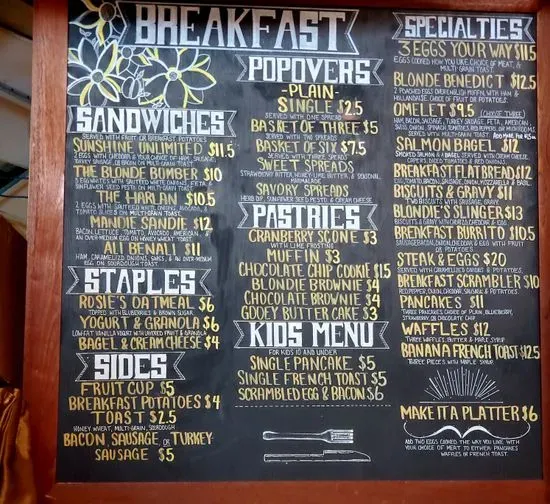 BREAKFAST
SANDWICHES
SERVED WITH FRUIT OR BREAKFAST POTATOES
SUNSHINE UNLIMITED $11.5
2 EGGS WITH CHEDDAR & YOUR CHOICE OF HAM, SAUSAGE,
TURKEY SAUSAGE, OR BACON ON MULTI-GRAIN TOAST
THE BLONDE BOMBER $10
3 EGG WHITES WITH SAUTÉED WHITE ONIONS, FETA, &
SUNFLOWER SEED PESTO ON MULTI-GRAIN TOAST
THE HARLAN $10.5
2 EGGS WITH WHITE ONIONS, AVOCADO,
TOMATO SLICES ON MULTI-GRAIN TOAST
MARNIE SANDIE $12
BACON, LETTUCE, TOMATO, AVOCADO, AMERICAN,
AN OVER-MEDIUM EGG ON HONEY WHEAT TOAST
ALI HENALI $11
HAM, CARAMELIZED ONIONS, SWISS, & AN OVER-MEDIUM
EGG ON SOURDOUGH TOAST
STAPLES
ROSIE'S OATMEAL $6
TOPPED WITH BLUEBERRIES & BROWN SUGAR
YOGURT & GRANOLA $6
LOW-FAT VANILLA YOGURT WITH MIXED FRUIT & GRANOLA
BAGEL & CREAM CHEESE $4
SIDES
FRUIT CUP $5
BREAKFAST POTATOES $4
TOAST $2.5
HONEY WHEAT, MULTI-GRAIN, SOURDOUGH
BACON, SAUSAGE, OR TURKEY
SAUSAGE $5
POPOVERS
-PLAIN-
SINGLE $2.5
SERVED WITH ONE SPREAD
BASKET OF THREE $5
SERVED WITH TWO SPREADS
BASKET OF SIX $7.5
SERVED WITH THREE SPREADS
SWEET SPREADS
STRAWBERRY BUTTER, HONEY-LIME BUTTER, & SEASONAL
MARMALADE
SAVORY SPREADS
HERB DIP, SUNFLOWER SEED PESTO, & CREAM CHEESE
PASTRIES
CRANBERRY SCONE $3
WITH LIME FROSTING
MUFFIN $3
CHOCOLATE CHIP COOKIE $1.5
BLONDIE BROWNIE $4
CHOCOLATE BROWNIE $4
GOOEY BUTTER CAKE $3
KIDS MENU
FOR KIDS 10 AND UNDER
SINGLE PANCAKE $5
SINGLE FRENCH TOAST $5
SCRAMBLED EGG & BACON $6
SPECIALTIES
3 EGGS YOUR WAY $11.5
EGGS COOKED HOW YOU LIKE, CHOICE OF MEAT, &
MULTI-GRAIN TOAST
BLONDE BENEDICT $12.5
2 POACHED EGGS OVER ENGLISH MUFFIN, WITH HAM &
HOLLANDAISE, CHOICE OF FRUIT OR POTATOES
OMELET $9.5 (CHOOSE THREE)
HAM, BACON, SAUSAGE, TURKEY SAUSAGE, FETA, AMERICAN,
SWISS, ONION, SPINACH, TOMATOES, RED PEPPERS, OR MUSHROOMS
SERVED WITH MULTI-GRAIN TOAST. ADD MORE FOR
SALMON BAGEL $12
SMOKED SALMON & A BAGEL SERVED WITH CREAM CHEESE,
CAPERS, SLICED TOMATOES, & RED ONIONS
BREAKFAST FLATBREAD $12
EGG, TOMATO, BACON, SAUSAGE, ONION, MOZZARELLA & BASIL
BISCUITS & GRAVY $11
TWO BISCUITS WITH SAUSAGE, GRAVY
BLONDIE'S SLINGER $13
BISCUITS & GRAVY WITH CHEESE & EGG
BREAKFAST BURRITO $10.5
SAUSAGE, BACON, ONION, CHEDDAR, & EGG WITH FRUIT
OR POTATOES
STEAK & EGGS $20
SERVED WITH CARAMELIZED ONIONS & POTATOES
BREAKFAST SCRAMBLER $10
RED PEPPER, ONION, CHEDDAR, SAUSAGE, & POTATOES
PANCAKES $11
THREE PANCAKES, CHOICE OF PLAIN, BLUEBERRY,
STRAWBERRY, OR CHOCOLATE CHIP
WAFFLES $12
THREE WAFFLES, BUTTER & MAPLE SYRUP
BANANA FRENCH TOAST $12.5
THREE PIECES WITH MAPLE SYRUP
MAKE IT A PLATTER $6
ADD TWO EGGS COOKED THE WAY YOU LIKE WITH
YOUR CHOICE OF MEAT TO EITHER PANCAKES
WAFFLES OR FRENCH TOAST.